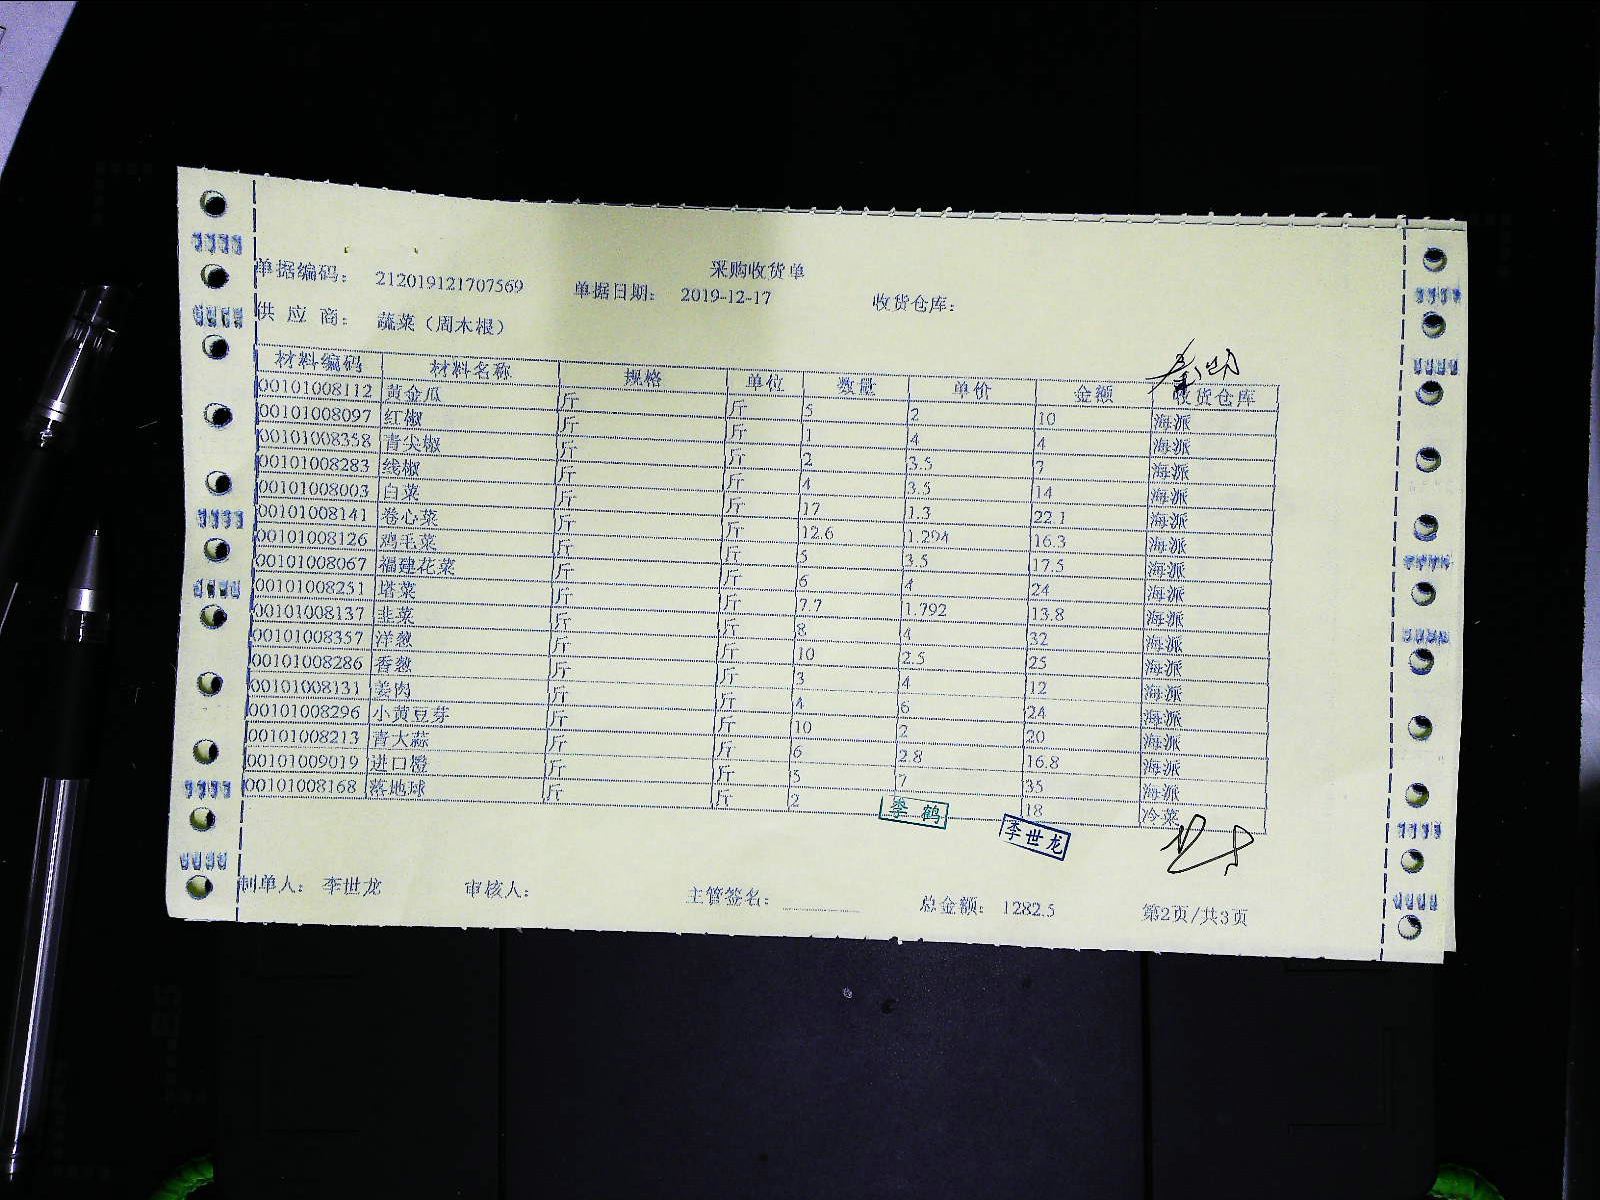 采购收货单
单据编码： 212019121707569 单据日期： 2019-12-17 收货仓库：
供 应 商： 蔬菜（周木根）
材料编码 材料名称 规格 单位 数量 单价 金额 收货仓库
00101008112 黄金瓜 斤 斤 5 2 10 海派
00101008097 红椒 斤 斤 1 4 4 海派
00101008358 青尖椒 斤 斤 2 3.5 7 海派
00101008283 线椒 斤 斤 4 3.5 14 海派
00101008003 白菜 斤 斤 17 1.3 22.1 海派
00101008141 卷心菜 斤 斤 12.6 1.294 16.3 海派
00101008126 鸡毛菜 斤 斤 5 3.5 17.5 海派
00101008067 福建花菜 斤 斤 6 4 24 海派
00101008251 塔菜 斤 斤 7.7 1.792 13.8 海派
00101008137 韭菜 斤 斤 8 4 32 海派
00101008357 洋葱 斤 斤 10 2.5 25 海派
00101008286 香葱 斤 斤 3 4 12 海派
00101008131 姜肉 斤 斤 4 6 24 海派
00101008296 小黄豆芽 斤 斤 10 2 20 海派
00101008213 青大蒜 斤 斤 6 2.8 16.8 海派
00101009019 进口橙 斤 斤 5 7 35 海派
00101008168 落地球 斤 斤 2 18 冷菜
季鹤
李世龙
制单人： 李世龙 审核人： 主管签名： 总金额： 1282.5 第2页/共3页